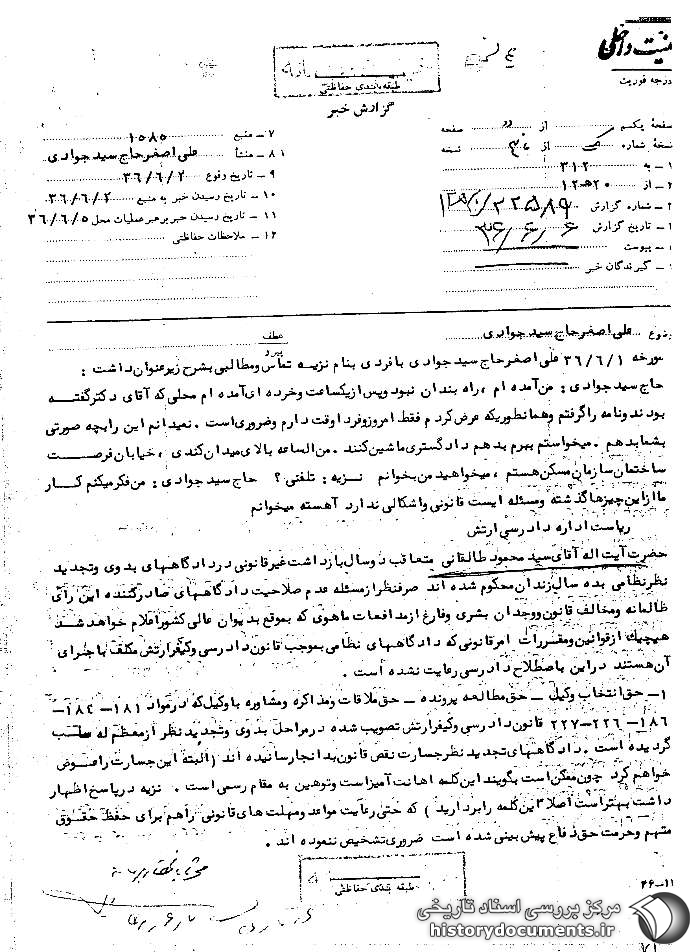 درجه فوریت
طبقه بندی حفاظتی
گزارش خبر
صفحه یکم از دو صفحه
نسخه شماره از نسخه
۱ – به ۳۱۲
۲ – از ۲۰ هـ ۱۲
۳ – شماره گزارش
۱ – تاریخ گزارش ۳۶/۶/۶
۱ – پیوست
۱ – گیرندگان خبر
۷ – منبع ۱۵۸۵
۸ – منشأ علی اصغر حاج سید جوادی
۹ – تاریخ وقوع ۳۶/۶/۲
۱۰ – تاریخ رسیدن خبر به منبع ۳۶/۶/۲
۱۱ – تاریخ رسیدن خبر برهبر عملیات محل ۳۶/۶/۵
۱۲ – ملاحظات حفاظتی
علی اصغر حاج سید جوادی
عطف
پیرو
مورخه ۳۶/۶/۱ علی اصغر حاج سید جوادی با فردی بنام نزیه تماس ومطالبی بشرح زیر عنوان داشت :
حاج سید جوادی : من آمده ام ، راه بندان نبود وپس از یکساعت وخرده ای آمده ام محلی که آقای دکتر گفته
بودند ونامه را گرفتم وهمانطوریکه عرض کردم فقط امروز وفردا وقت دارم وضروری است . نمیدانم این را بچه صورتی
بشما بدهم . میخواستم ببرم بدهم دادگستری ماشین کنند . من الساعه بالای میدان کندی ، خیابان فرصت
ساختمان سازمان مسکن هستم ، میخواهید من بخوانم نزیه : تلفنی ؟ حاج سید جوادی : من فکر میکنم کار
ما از این چیزها گذشته ومسئله ایست قانونی واشکالی ندارد آهسته میخوانم
ریاست اداره دادرسی ارتش
حضرت آیت اله آقای سید محمود طالقانی متعاقب دوسال بازداشت غیرقانونی در دادگاههای بدوی وتجدید
نظر نظامی بده سال زندان محکوم شده اند صرفنظر از مسئله عدم صلاحیت دادگاههای صادر کننده این رأی
ظالمانه ومخالف قانون ووجدان بشری وفارغ از مدافعات ماهوی که بموقع بدیوان عالی کشور اعلام خواهد شد
هیچیک از قوانین ومقررات امر قانونی که دادگاههای نظامی بموجب قانون دادرسی وکیفر ارتش مکلف باجرای
آن هستند در این باصطلاح دادرسی رعایت نشده است .
۱– حق انتخاب وکیل – حق مطالعه پرونده – حق ملاقات ومذاکره ومشاوره با وکیل که در مواد ۱۸۱– ۱۸۴–
۱۸۶– ۲۲۶– ۲۲۷ قانون دادرسی وکیفر ارتش تصویب شده در مراحل بدوی وتجدید نظر از معظم له سلب
گردیده است . دادگاههای تجدید نظر جسارت نقض قانون بدانجا رسانیده اند ( البته این جسارت را عوض
خواهم کرد چون ممکن است بگویند این کلمه اهانت آمیز است وتوهین به مقام رسمی است . نزیه در پاسخ اظهار
داشت بهتر است اصلا این کلمه را بردارید ) که حتی رعایت مواعد ومهلت های قانونی را هم برای حفظ حقوق
متهم وحرمت حق دفاع پیش بینی شده است ضروری تشخیص ننموده اند .
طبقه بندی حفاظتی
۱۱–۳۶
مرکز بررسی اسناد تاریخی
historydocuments.ir